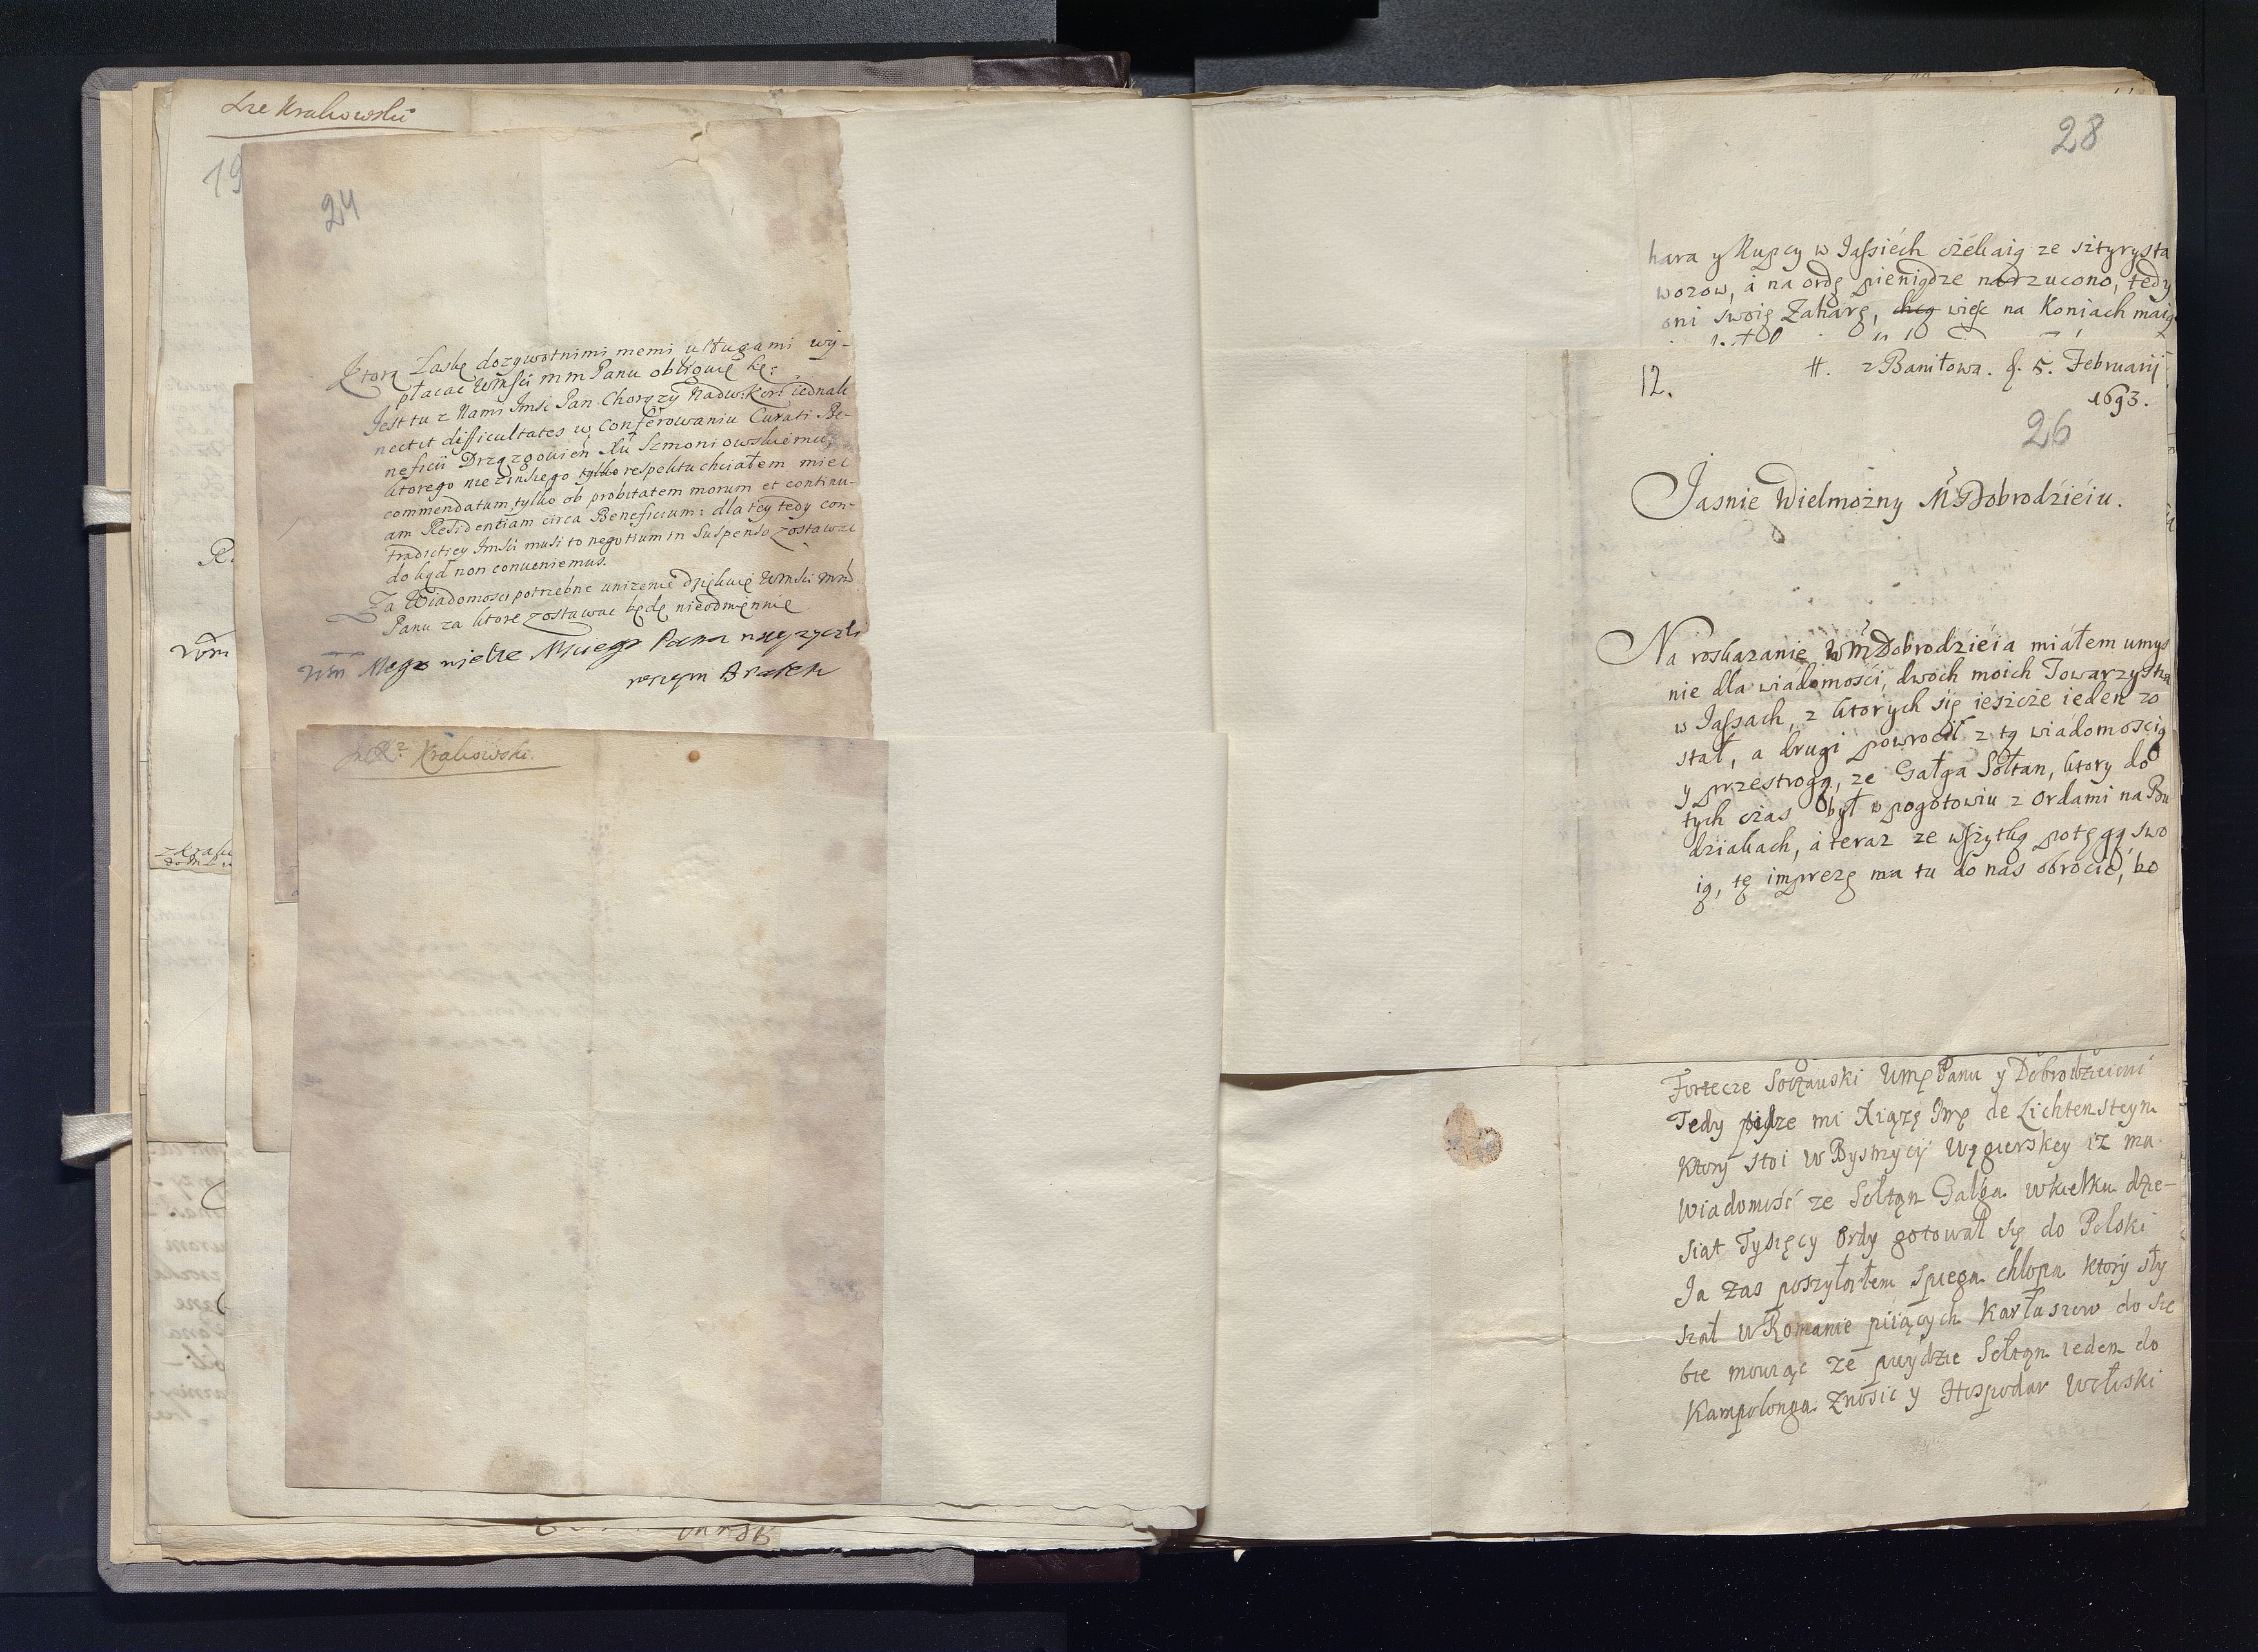 Krakowski
19
24
Ktorą Łaskę dozywotnimi memi usługami wy-
płacac Wmsci mm Panu obliguię się:
Jest tu z Nami Jmsc Pan Chorązy Nadw: Kor: iednak
nectit difficultates w conferowaniu Curati Be-
neficii Drązgowień Xu Szmoniowskiemu,
ktorego nie inszego tylko respektu chciałem miec
commendatum, tylko ob probitatem morum et continu-
am Residentiam circa Beneficium: dla tey tedy con-
tradictiey Jmsci musi to negotium in Suspenso zostawac
do kąd non conueniemus.
Za Wiadomosci potrzebne unizenie dziękuię Wmsci mm
Panu za ktore zostawac będę nieodmięnnie
Wm Mego wielce Mciwego Pana
Bratem
Krakowski.
28
hara y Kupcy w Jassiech czekaią ze sztyrysta
wozow, á na ordę pieniądze nadrzucono, tedy
oni swoię Zaharę, chcą więc na Koniach maią
12.
#. z Baniłowa. d. 5. Februarij
1693.
26
Jasnie Wielmozny M Dobrodzieiu.
Na roskazanie WM Dobrodzieia miáłem umys
nie dla wiádomosci, dwoch moich Towarzystwa
w Jassach, z ktorych się ieszcze ieden zo
stał, a drugi powrocił z tą wiadomoscią
y przestrogą, ze Gałga Sołtan, ktory do
tych czas był w pogotowiu z Ordami na Bu
dziakach, á teraz ze wszytką potęgą swo
ią, tę imprezę ma tu do nas obrocic, bo
Fortecze Soczauski Wmę Panu y Dobrodzieiowi
Tedy pisze mi Xiąże Jmę de Lichtensteyn
Ktory stoi w Bystrzycy Węgierskey iz ma
Wiadomosć ze Sołtąn Gałga w kielku dzie-
siat Tysięcy Ordy gotował się do Polski
Ja zas poszyłałem spiega chłopa ktory sły
szał w Romanie piiących Karłaszow do sie
bie mowiąc ze puydzie Sołtąn ieden do
Kampolonga Znosic y Hospodar Wołoski